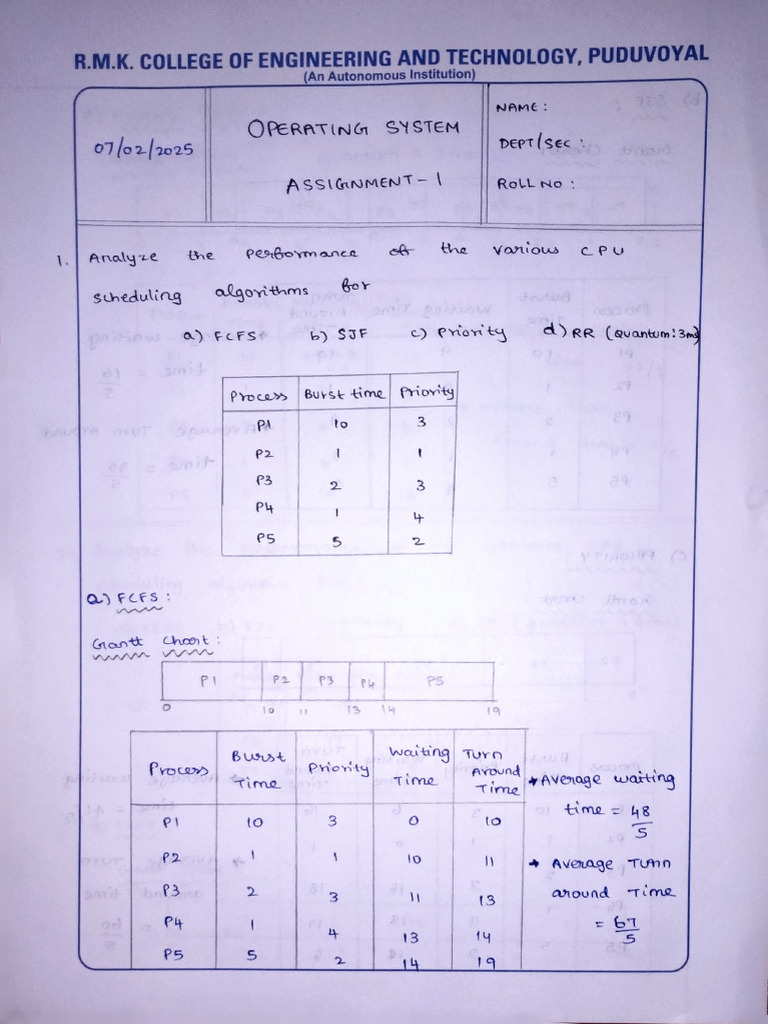 R.M.K. COLLEGE OF ENGINEERING AND TECHNOLOGY, PUDUVOYAL
(An Autonomous Institution)
07/02/2025
OPERATING SYSTEM
ASSIGNMENT-1
NAME :
DEPT/SEC :
ROLL NO :
1. Analyze the performance of the various CPU
scheduling algorithms for
a) FCFS b) SJF c) Priority d) RR (Quantum:3ms)
Process Burst time Priority
P1 10 3
P2 1 1
P3 2 3
P4 1 4
P5 5 2
a) FCFS :
Gantt Chart :
P1 P2 P3 P4 P5
0 10 11 13 14 19
Process Burst Time Priority Waiting Time Turn Around Time
P1 10 3 0 10
P2 1 1 10 11
P3 2 3 11 13
P4 1 4 13 14
P5 5 2 14 19
Average waiting
time = 48/5
Average Turn
around Time
= 67/5